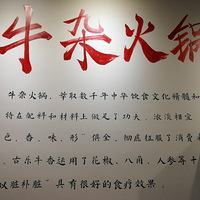 牛杂火锅
牛杂火锅，萃取数千年中华饮食文化精髓和
特在配料和材料上做足了功夫，浓淡相宜
色、香、味、形”俱全，彻底征服了消费
。古乐牛香运用了花椒、八角、人参等十
以脏补脏”具有很好的食疗效果。